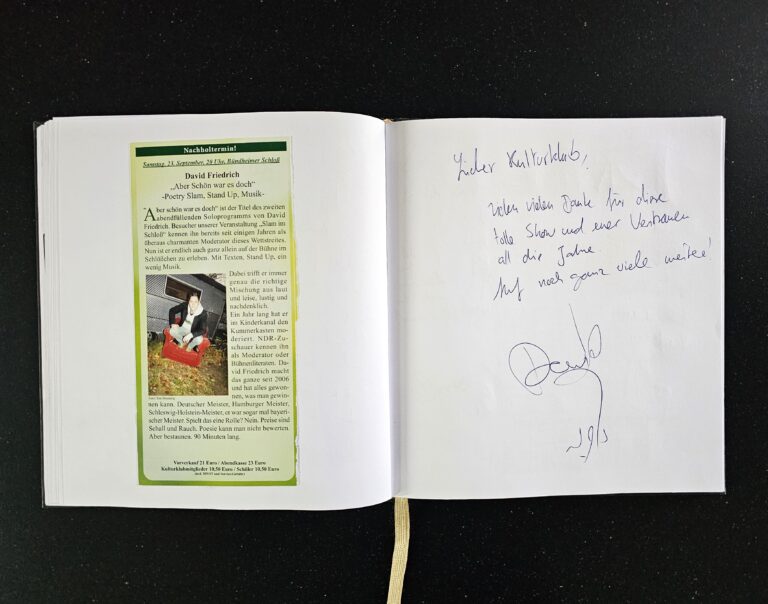 Nachholtermin!
Samstag, 23. September, 20 Uhr, Bündheimer Schloß
David Friedrich
„Aber Schön war es doch“
-Poetry Slam, Stand Up, Musik-
„Aber schön war es doch“ ist der Titel des zweiten
abendfüllenden Soloprogramms von David
Friedrich. Besucher unserer Veranstaltung „Slam im
Schloß“ kennen ihn bereits seit einigen Jahren als
überaus charmanten Moderator dieses Wettstreites.
Nun ist er endlich auch ganz allein auf der Bühne im
Schlößchen zu erleben. Mit Texten, Stand Up, ein
wenig Musik.
Dabei trifft er immer
genau die richtige
Mischung aus laut
und leise, lustig und
nachdenklich.
Ein Jahr lang hat er
im Kinderkanal den
Kummerkasten mo-
deriert. NDR-Zu-
schauer kennen ihn
als Moderator oder
Bühnenliteraten. Da-
vid Friedrich macht
das ganze seit 2006
und hat alles gewon-
nen, was man gewin-
nen kann. Deutscher Meister, Hamburger Meister,
Schleswig-Holstein-Meister, er war sogar mal bayeri-
scher Meister. Spielt das eine Rolle? Nein. Preise sind
Schall und Rauch. Poesie kann man nicht bewerten.
Aber bestaunen. 90 Minuten lang.
Vorverkauf 21 Euro / Abendkasse 23 Euro
Kulturklubmitglieder 10,50 Euro / Schüler 10,50 Euro
Lieber Kulturklub,
vielen vielen Danke für diese
tolle Show und euer Vertrauen
all die Jahre.
Auf noch ganz viele weitere!
David